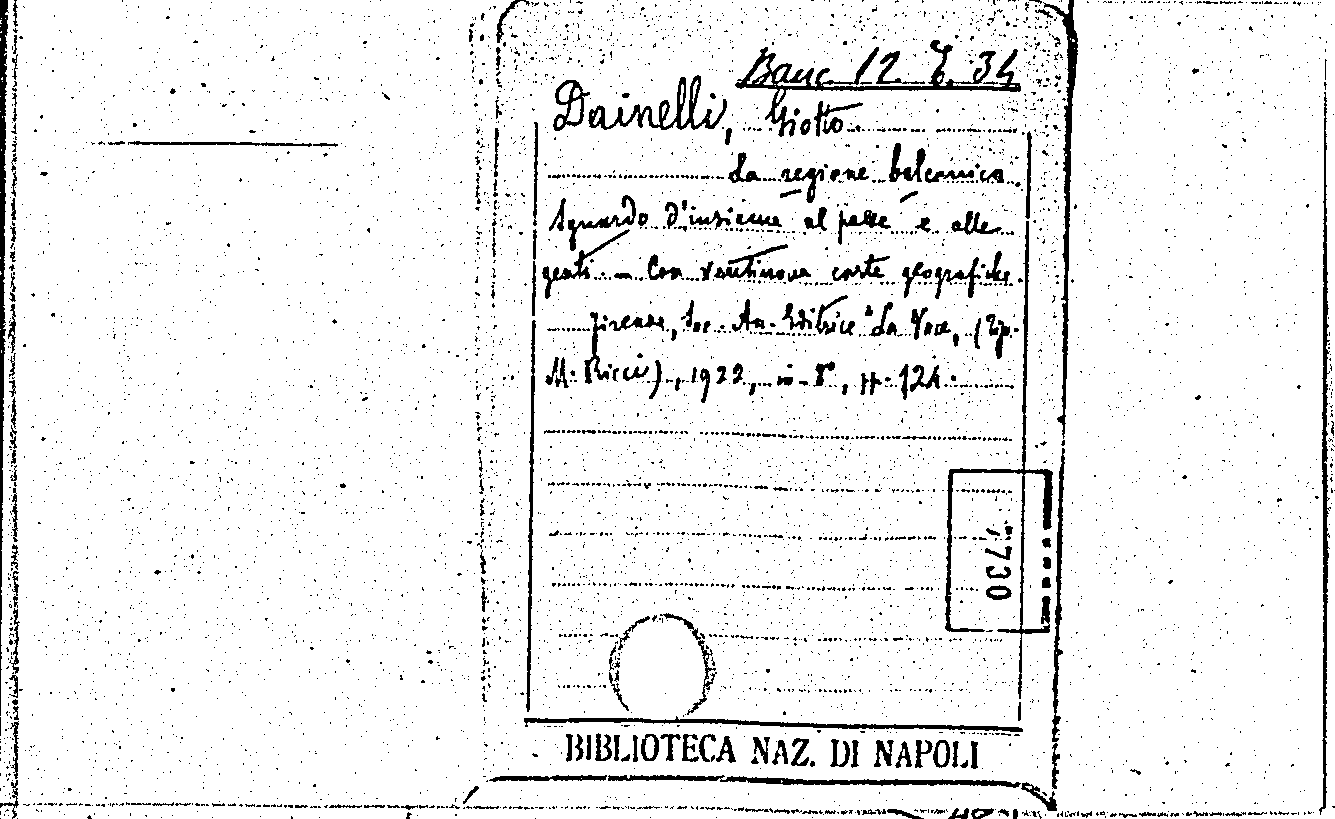 Banc. 12. E. 34
Dainelli, Giotto.
La regione balcanica.
Sguardo d'insieme al paese e alle
genti. - Con ventinova carte geografiche.
Firenze, Soc. An. Editrice "La Voce, (Tip.
M. Ricci), 1922, in-8°, pp. 124.
7730
BIBLIOTECA NAZ. DI NAPOLI